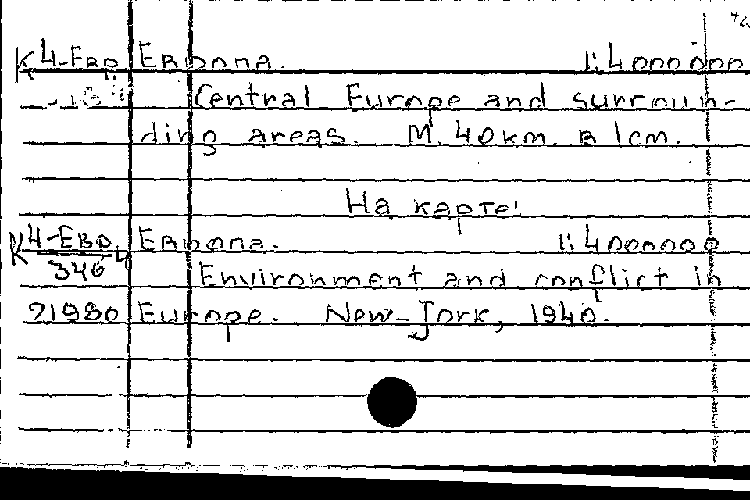 К4-Евр Европа. 1:4000000
Central Europe and surroun-
ding areas. М. 40км. в 1см.
На карте:
К4-Евр. Европа. 1:4000000
346
Environment and conflict in
71980 Europe. New-Jork, 1940.